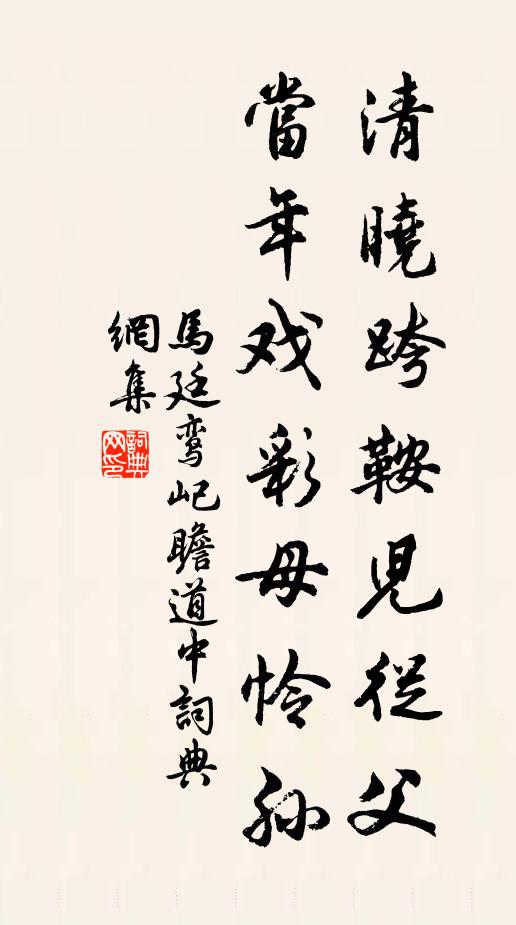 清曉跨鞍兒從父
當年戏彩母怜孙
馬廷鸾屺瞻道中詞典
網集
詞典網印